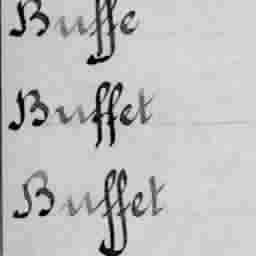 Buffe
Buffet
Buffet